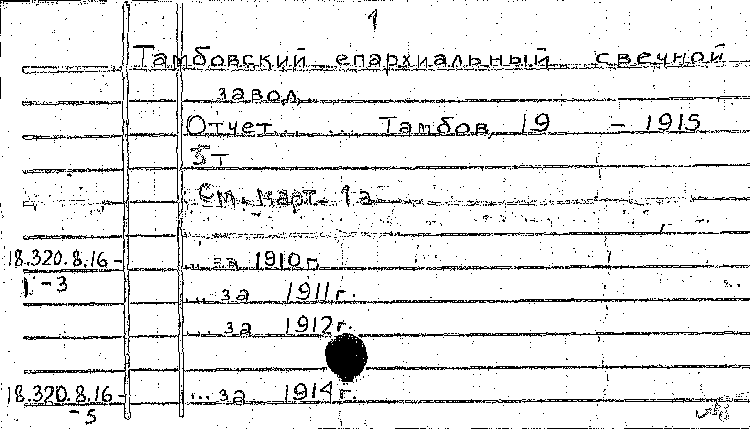 1
Тамбовский епархиальный свечной
завод.
Отчет... ... Тамбов, 19 - 1915
5т
См. карт. 1а
18.320.8.16- ... за 1910г.
1-3 ... за 1911г.
... за 1912г.
18.320.8.16- ... за 1914г.
-5